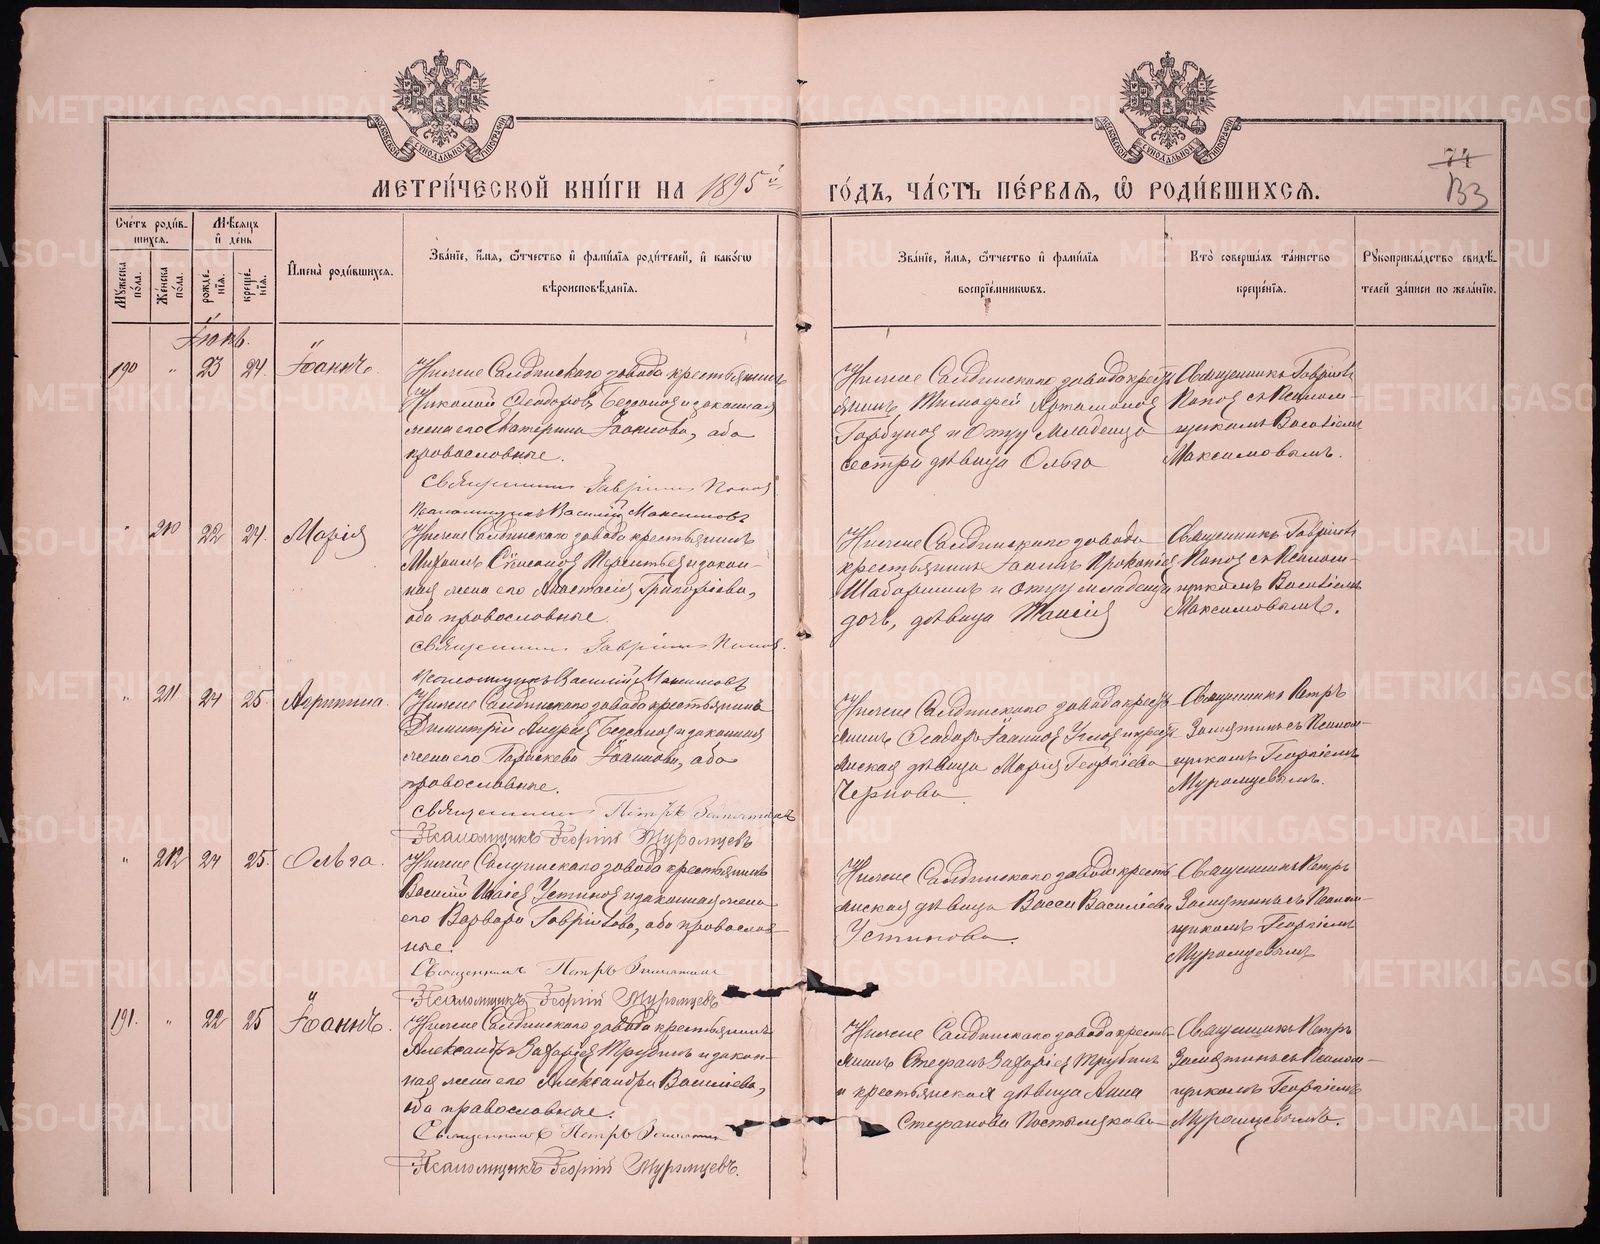 МЕТРИ́ЧЕСКОЙ КНИ́ГИ НА 1895й ГО́ДЪ, ЧА́СТЬ ПЕ́РВАЯ, Ѡ РОДИ́ВШИХСЯ.
74
133
Сче́тъ роди́вшихся.
Му́жеска по́ла.
Же́нска по́ла.
Мѣ́сяцъ и де́нь
рожде́нія.
креще́нія.
И́мена роди́вшихся.
Зва́ніе, и́мя, ѻ́тчество и фами́лія роди́телей, и како́гѡ
вѣроисповѣ́данія.
Зва́ніе, и́мя, ѻ́тчество и фами́лія
воспріе́мниковъ.
Кто̀ соверша́лъ та́инство
креще́нія.
Рукоприкла́дство свидѣ́-
телей за́писи по жела́нію.
190 " 23 24. Іоаннъ.
Нижне Салдинскаго завода крестьянинъ
Николай Феодоровъ и законная
жена его Екатерина Іоаннова, оба
православные.
Священникъ Гавріилъ Поповъ
Псаломщикъ Василій Максимовъ
Нижне Салдинскаго завода кресть
янинъ Тимофей Артамоновъ
Горбуновъ и отцу младенца
сестра дѣвица Ольга
Священникъ Гавріилъ
Поповъ съ Псалом-
щикомъ Василіемъ
Максимовымъ.
" 210 22 24. Марія
Нижне Салдинскаго завода крестьянинъ
Михаилъ и закон-
ная жена его Анастасія Григоріева,
оба православные.
Священникъ Гавріилъ Поповъ.
Псаломщикъ Василій Максимовъ
Нижне Салдинскаго завода
крестьянинъ Іоаннъ Прокопіевъ
Шабаршинъ и отцу младенца
дочь, дѣвица Таисія
Священникъ Гавріилъ
Поповъ съ Псалом-
щикомъ Василіемъ
Максимовымъ.
" 211 24 25. Агрипина.
Нижне Салдинскаго завода крестьянинъ
Димитрій Андреевъ и законная
жена его Параскева Іоаннова, оба
православные.
Священникъ Петръ Замятинъ
Псаломщикъ Георгій Муромцевъ
Нижне Салдинскаго завода кресть
янинъ Феодоръ Іоанновъ и кресть
янская дѣвица Марія Георгіева
Чернова
Священникъ Петръ
Замятинъ съ Псалом-
щикомъ Георгіемъ
Муромцевымъ.
" 212 24 25. Ольга.
Нижне Салдинскаго завода крестьянинъ
Василій Устиновъ и законная жена
его Варвара Гавріилова, оба православ-
ные.
Священникъ Петръ Замятинъ
Псаломщикъ Георгій Муромцевъ
Нижне Салдинскаго завода кресть
янская дѣвица Васса Василіева
Устинова.
Священникъ Петръ
Замятинъ съ Псалом-
щикомъ Георгіемъ
Муромцевымъ
191. " 22 25 Іоаннъ.
Нижне Салдинскаго завода крестьянинъ
Александръ Захаріевъ Трубинъ и закон-
ная жена его Александра Василіева,
оба православные.
Священникъ Петръ Замятинъ
Псаломщикъ Георгій Муромцевъ.
Нижне Салдинскаго завода кресть-
янинъ Стефанъ Захаріевъ Трубинъ
и крестьянская дѣвица Анна
Стефанова Постылякова
Священникъ Петръ
Замятинъ съ Псалом-
щикомъ Георгіемъ
Муромцевымъ.
METRIKI.GASO-URAL.RU